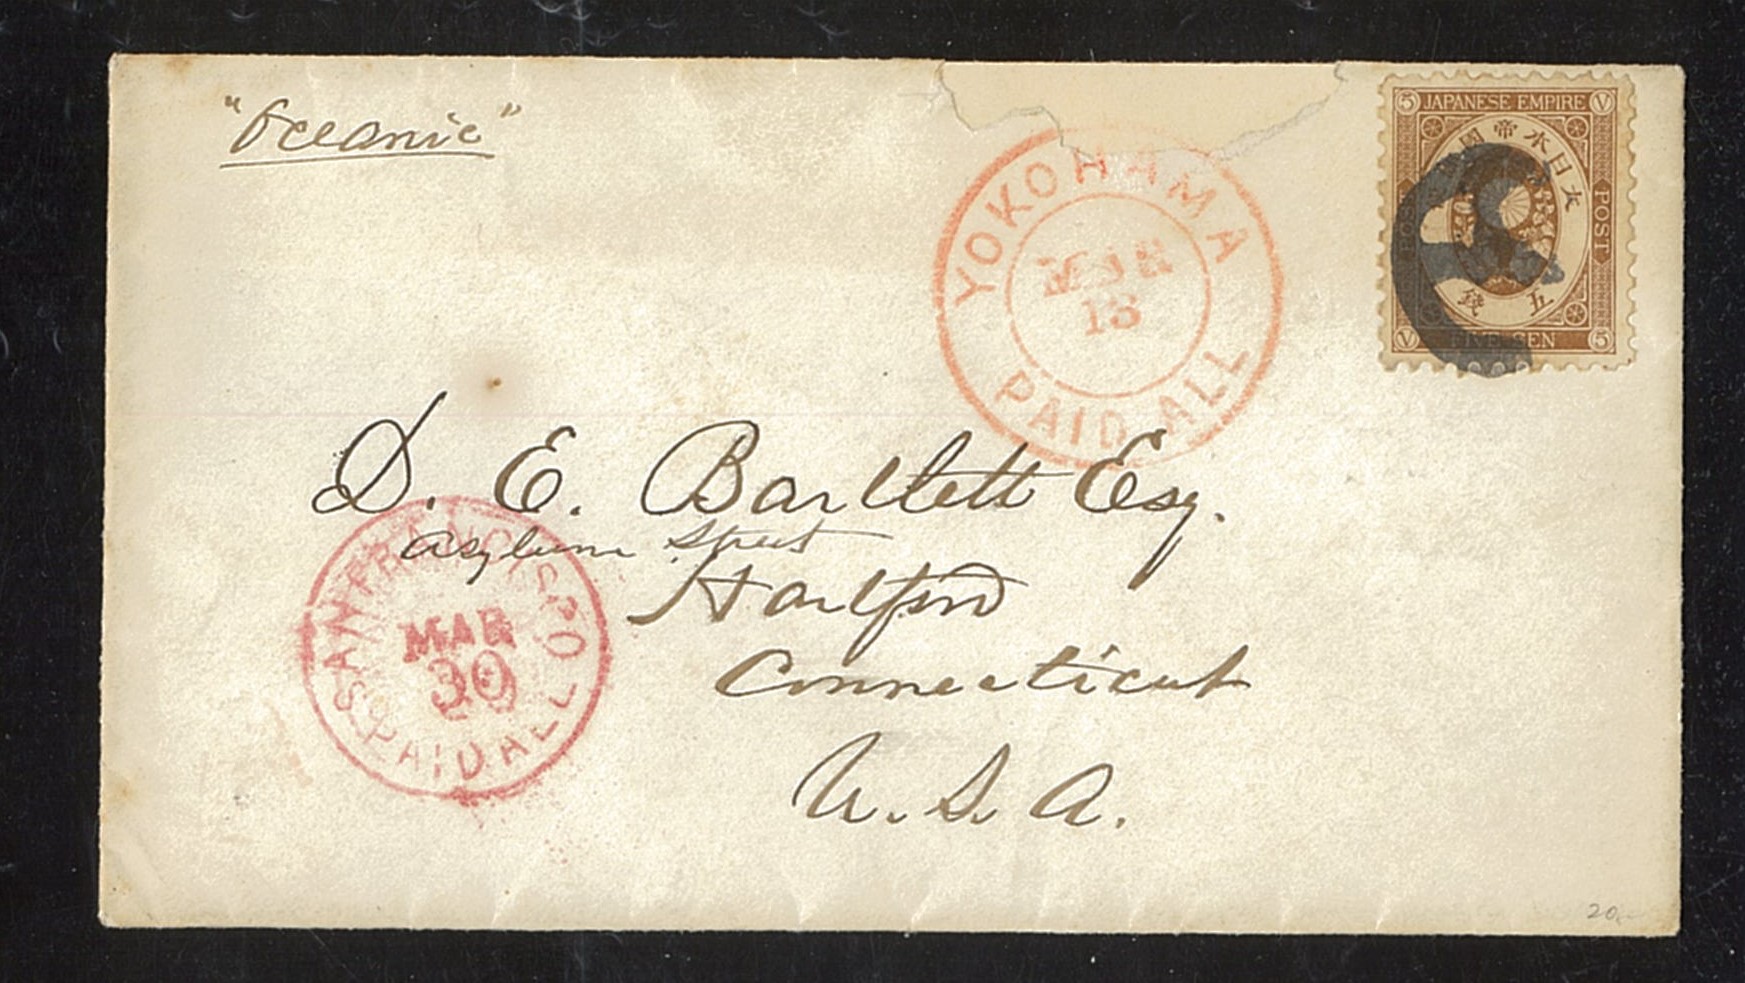 "Oceanic"
YOKOHAMA
MAR
13
PAID ALL
5 JAPANESE EMPIRE V
大日本帝國
POST
五錢
V FIVE SEN 5
D. E. Bartlett Esq.
Asylum Street
Hartford
Connecticut
U. S. A.
SAN FRANCISCO
MAR
30
PAID ALL
20